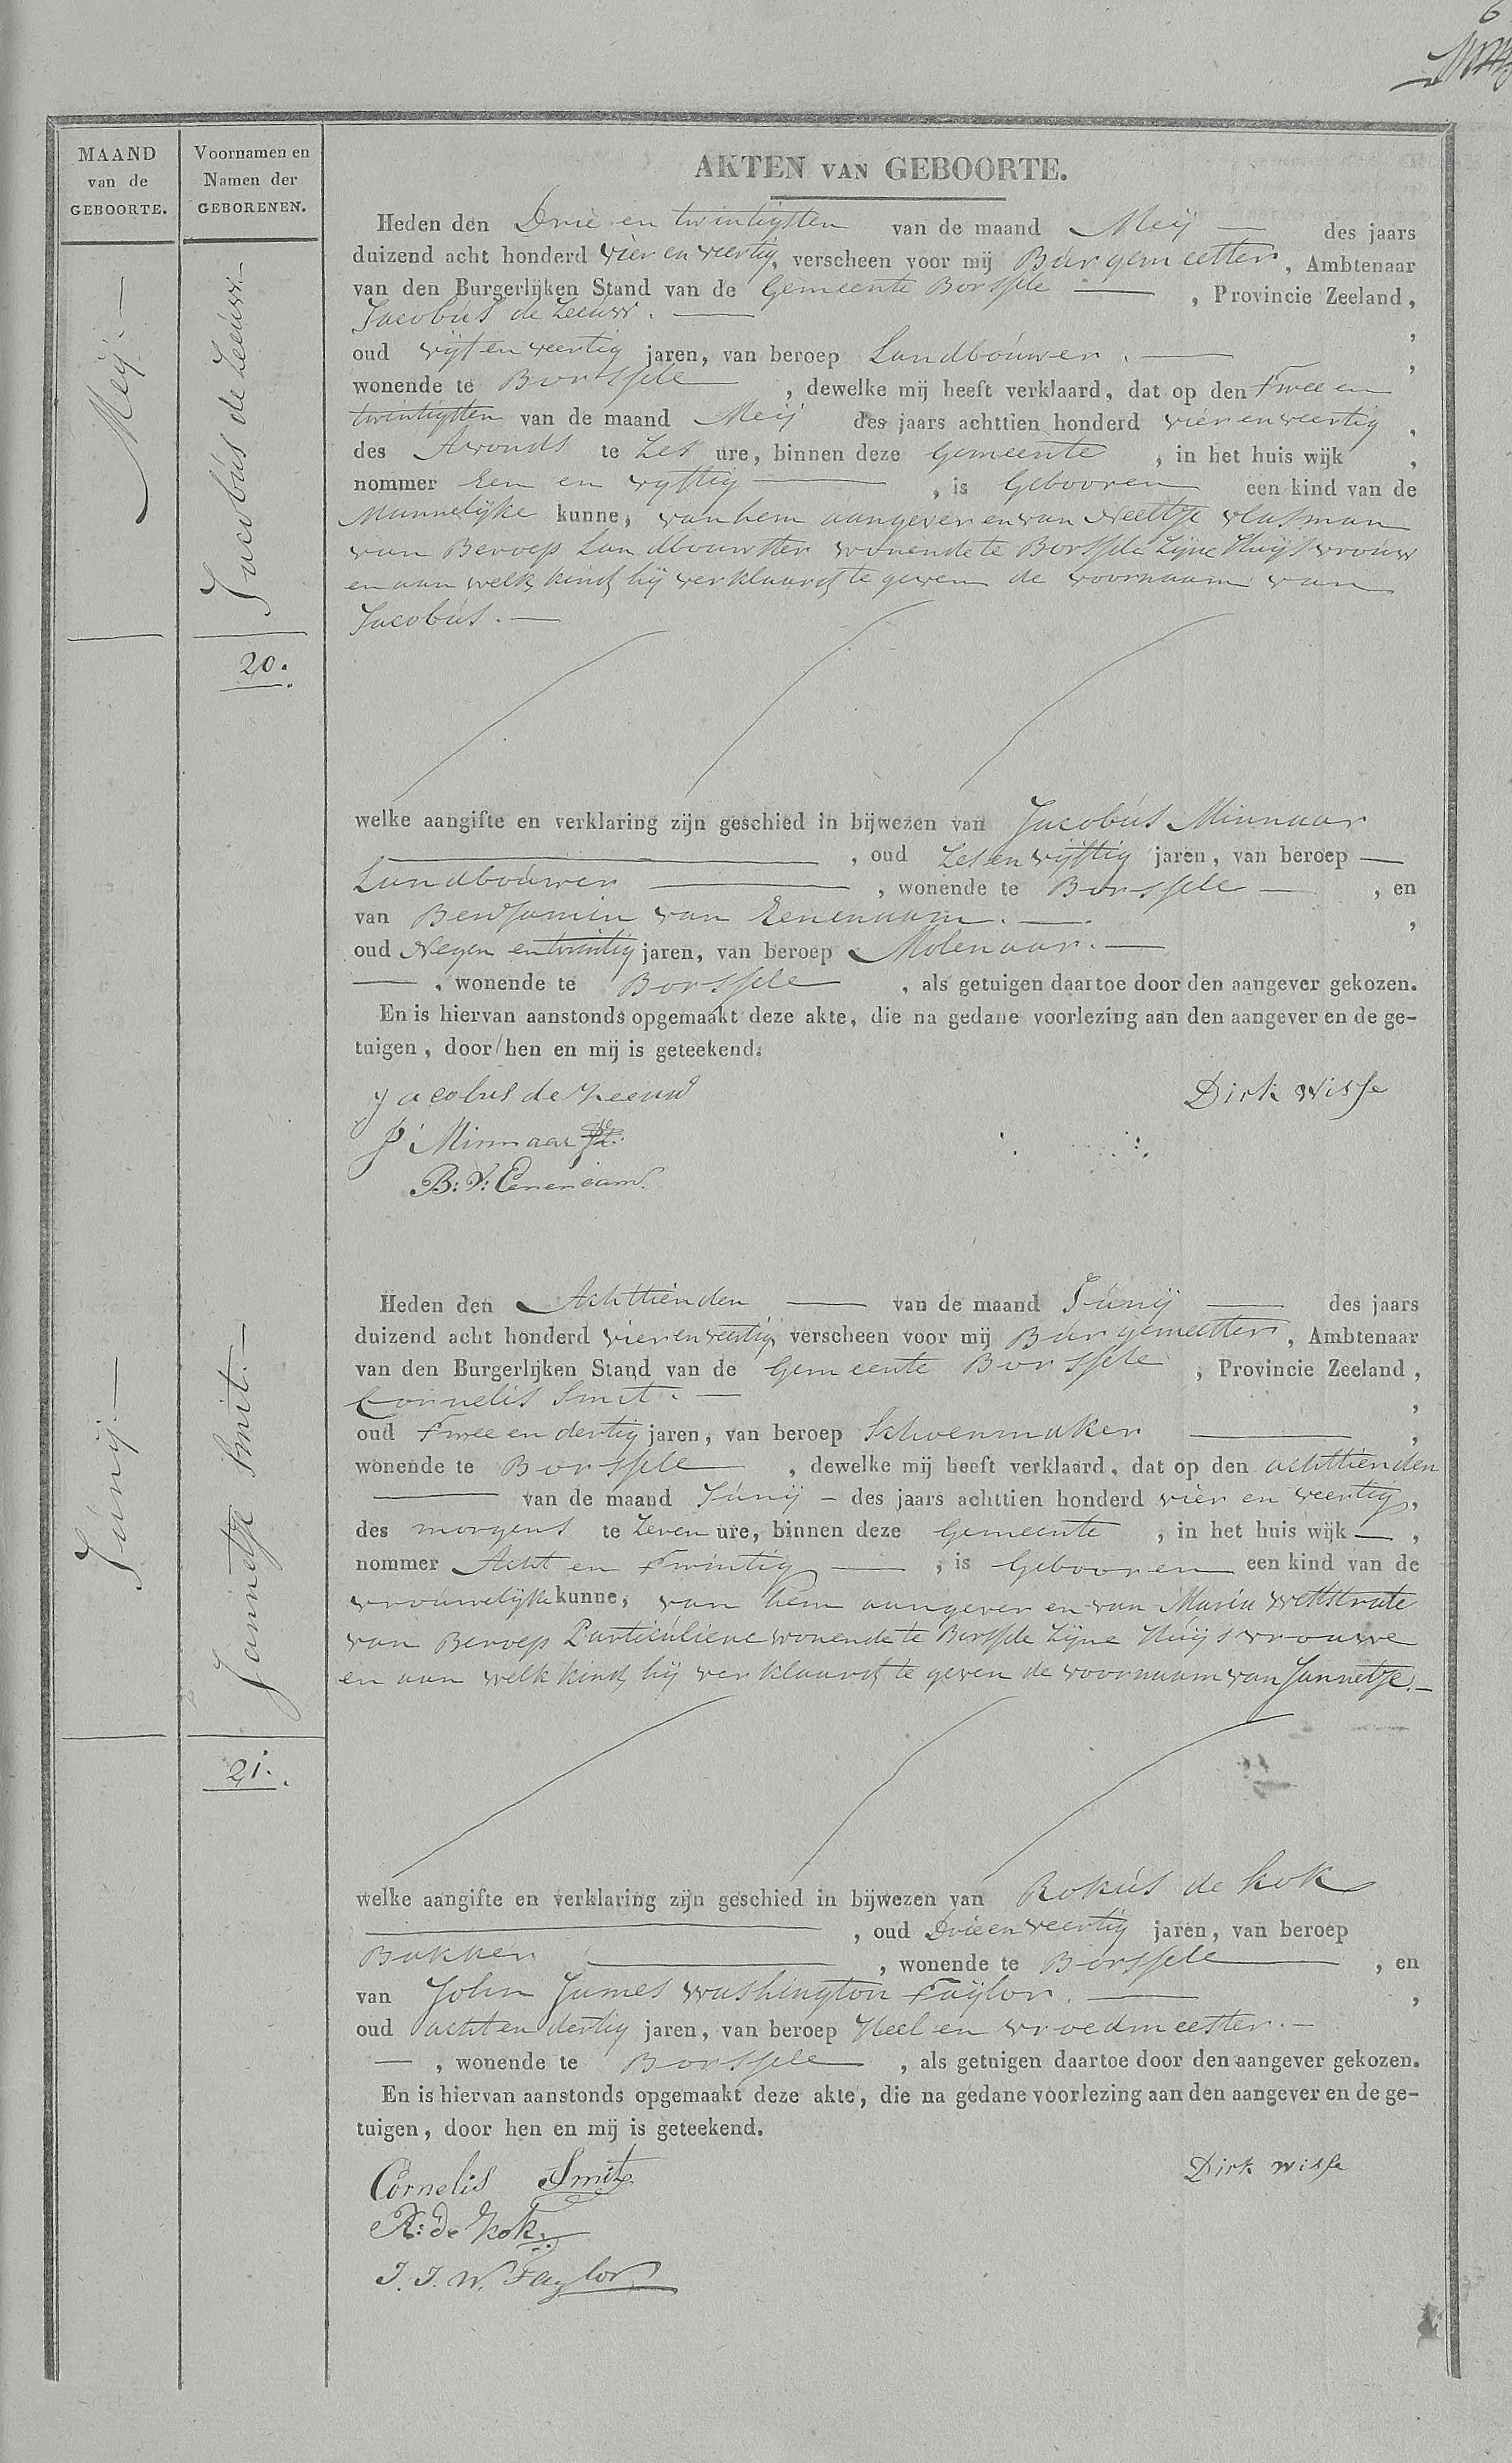 6
MAAND
van de
GEBOORTE.
Voornamen en
Namen der
GEBORENEN.
AKTEN VAN GEBOORTE.
Meij.
Jacobús de Zeeúw.
20.
Heden den Drie en twintigsten van de maand Meij des jaars
duizend acht honderd vier en veertig, verscheen voor mij Búrgemeester, Ambtenaar
van den Burgerlijken Stand van de Gemeente Borssele, Provincie Zeeland,
Jacobús de Zeeúw. ,
oud vijf en veertig jaren, van beroep Landboúwer. ,
wonende te Borssele, dewelke mij heeft verklaard, dat op den Twee en
twintigsten van de maand Meij des jaars achttien honderd vier en veertig,
des Avonds te Zes ure, binnen deze Gemeente, in het huis wijk ,
nommer Een en vyftig, is Gebooren een kind van de
Mannelijke kunne, van hem aangever en van Neeltje Vlasman
van Beroep Landbouwster wonende te Borssele Zijne Huijsvroúw
en aan welk kind hij verklaard te geven de voornaam van
Jacobús.
welke aangifte en verklaring zijn geschied in bijwezen van Jacobús Minnaar
, oud Zes en vijftig jaren, van beroep
Landboúwer, wonende te Borssele, en
van Benjamin van Eenennaam. ,
oud Negen en twintig jaren, van beroep Molenaar.
, wonende te Borssele, als getuigen daartoe door den aangever gekozen.
En is hiervan aanstonds opgemaakt deze akte, die na gedane voorlezing aan den aangever en de ge-
tuigen, door hen en mij is geteekend.
Jacobus de Zeeuw
Dirk Wisse
J Minnaar
B: V: Eenennaam
Júnij.
Jannetje Smit.
21.
Heden den Achttienden van de maand Júnij des jaars
duizend acht honderd vier en veertig, verscheen voor mij Búrgemeester, Ambtenaar
van den Burgerlijken Stand van de Gemeente Borssele, Provincie Zeeland,
Cornelis Smit. ,
oud Twee en dertig jaren, van beroep Schoenmaker ,
wonende te Borssele, dewelke mij heeft verklaard, dat op den achttienden
van de maand Júnij des jaars achttien honderd vier en veertig,
des morgens te Zeven ure, binnen deze Gemeente, in het huis wijk ,
nommer Acht en Twintig, is Gebooren een kind van de
vroúwelijke kunne, van hem aangever en van Maria Weststrate
van Beroep Particúliere wonende te Borssele Zijne Húijsvrouwe
en aan welk kind hij verklaard te geven de voornaam van Jannetje.
welke aangifte en verklaring zijn geschied in bijwezen van Rokús de Kok
, oud Drie en veertig jaren, van beroep
Bakker, wonende te Borssele, en
van John James Washington Taÿlor. ,
oud acht en dertig jaren, van beroep Heel en vroedmeester.
, wonende te Borssele, als getuigen daartoe door den aangever gekozen.
En is hiervan aanstonds opgemaakt deze akte, die na gedane voorlezing aan den aangever en de ge-
tuigen, door hen en mij is geteekend.
Cornelis Smit
Dirk Wisse
R: de Kok
J. J. W. Taylor